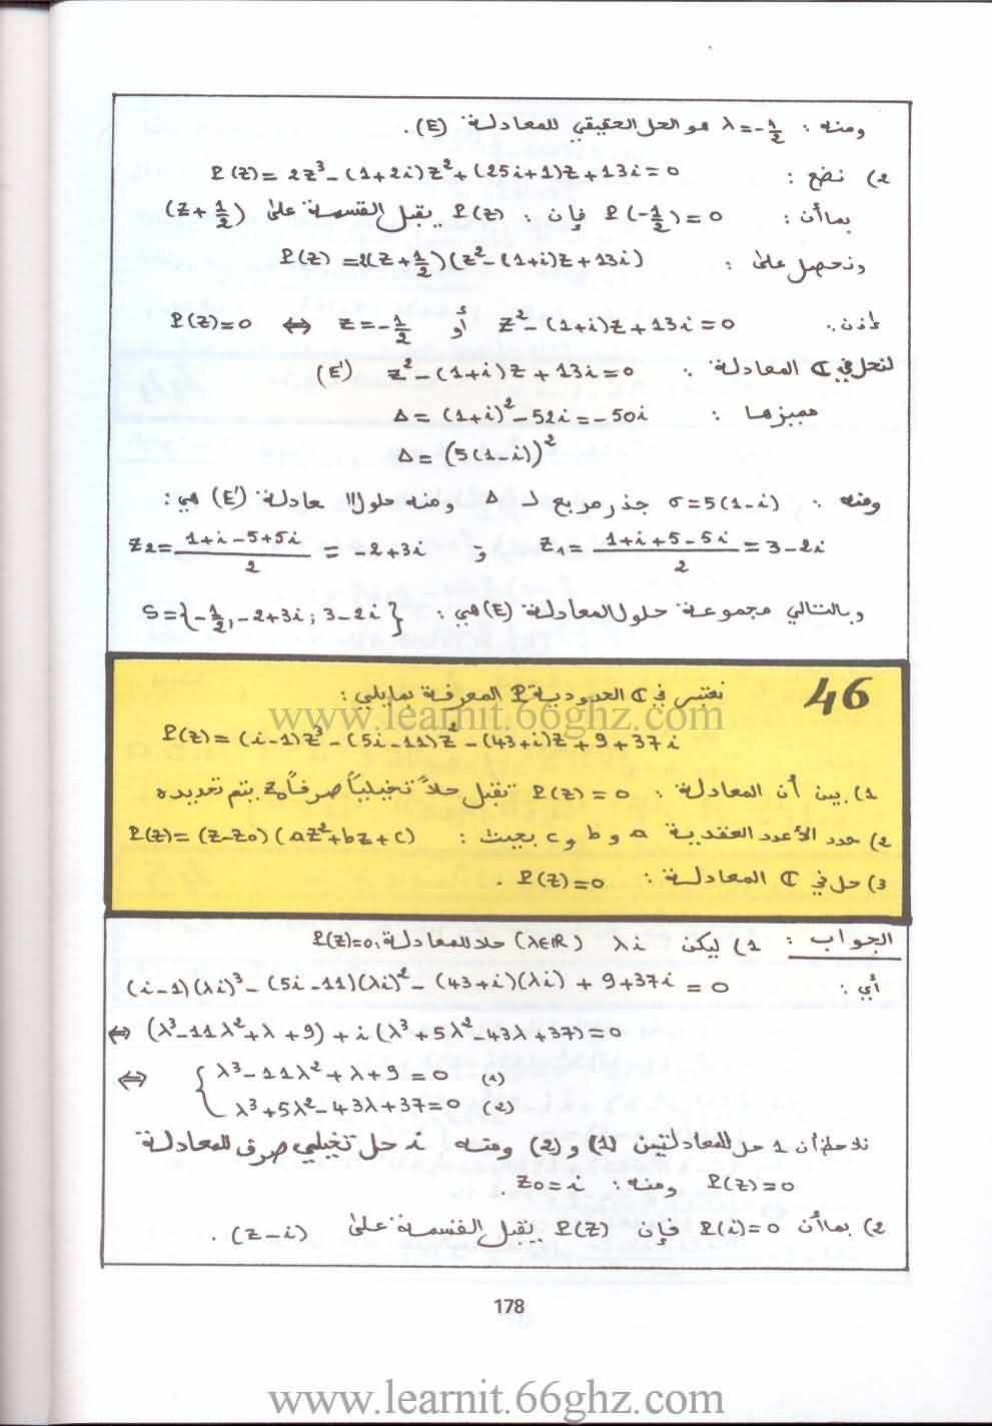 ومنه : λ = -1/2 هو الحل الحقيقي للمعادلة (E).
2) نضع : P(z) = 2z³ - (1+2i)z² + (25i+1)z + 13i = 0
بما أن : P(-1/2) = 0 فإن : P(z) يقبل القسمة على (z + 1/2)
ونحصل على : P(z) = 2(z + 1/2)(z² - (1+i)z + 13i)
إذن : P(z) = 0 ⇔ z = -1/2 أو z² - (1+i)z + 13i = 0
لنحل في ℂ المعادلة : z² - (1+i)z + 13i = 0 (E')
مميزها : Δ = (1+i)² - 52i = -50i
Δ = (5(1-i))²
ومنه : σ = 5(1-i) جذر مربع لـ Δ ومنه حلول المعادلة (E') هي :
z₁ = (1+i+5-5i)/2 = 3-2i و z₂ = (1+i-5+5i)/2 = -2+3i
وبالتالي مجموعة حلول المعادلة (E) هي : S = {-1/2, -2+3i ; 3-2i}
46
نعتبر في ℂ الحدودية P المعرفة بمايلي :
www.learnit.66ghz.com
P(z) = (i-1)z³ - (5i-11)z² - (43+i)z + 9 + 37i
1) بين أن المعادلة : P(z) = 0 تقبل حلاً تخيلياً صرفاً z₀ يتم تحديده
2) حدد الأعدد العقدية a و b و c بحيث : P(z) = (z-z₀)(az²+bz+c)
3) حل في ℂ المعادلة : P(z) = 0 .
الجواب : 1) ليكن λi (λ∈ℝ) حلا للمعادلة P(z)=0,
أي : (i-1)(λi)³ - (5i-11)(λi)² - (43+i)(λi) + 9+37i = 0
⇔ (λ³-11λ²+λ+9) + i(λ³+5λ²-43λ+37) = 0
⇔ { λ³-11λ²+λ+9 = 0 (1)
λ³+5λ²-43λ+37 = 0 (2)
نلاحظ أن 1 حل للمعادلتين (1) و (2) ومنه i حل تخيلي صرف للمعادلة
P(z)=0 ومنه : z₀ = i .
2) بما أن P(i)=0 فإن P(z) يقبل القسمة على (z-i) .
178
www.learnit.66ghz.com